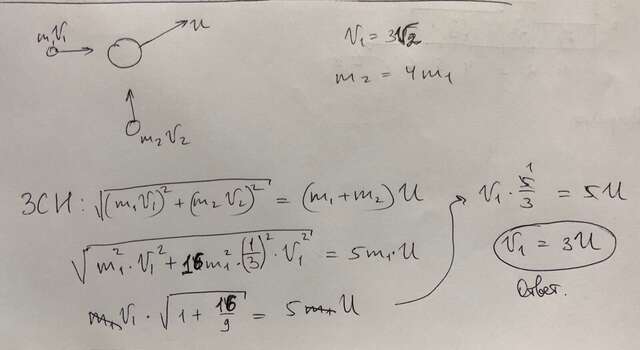 m₁V₁
U
m₂V₂
V₁ = 3V₂
m₂ = 4m₁
ЗСИ: √((m₁V₁)² + (m₂V₂)²) = (m₁+m₂)U
√(m₁²·V₁² + 16m₁²·(1/3)²·V₁²) = 5m₁·U
m₁V₁·√(1 + 16/9) = 5m₁U
V₁·5/3 = 5U
1
V₁ = 3U
Ответ.